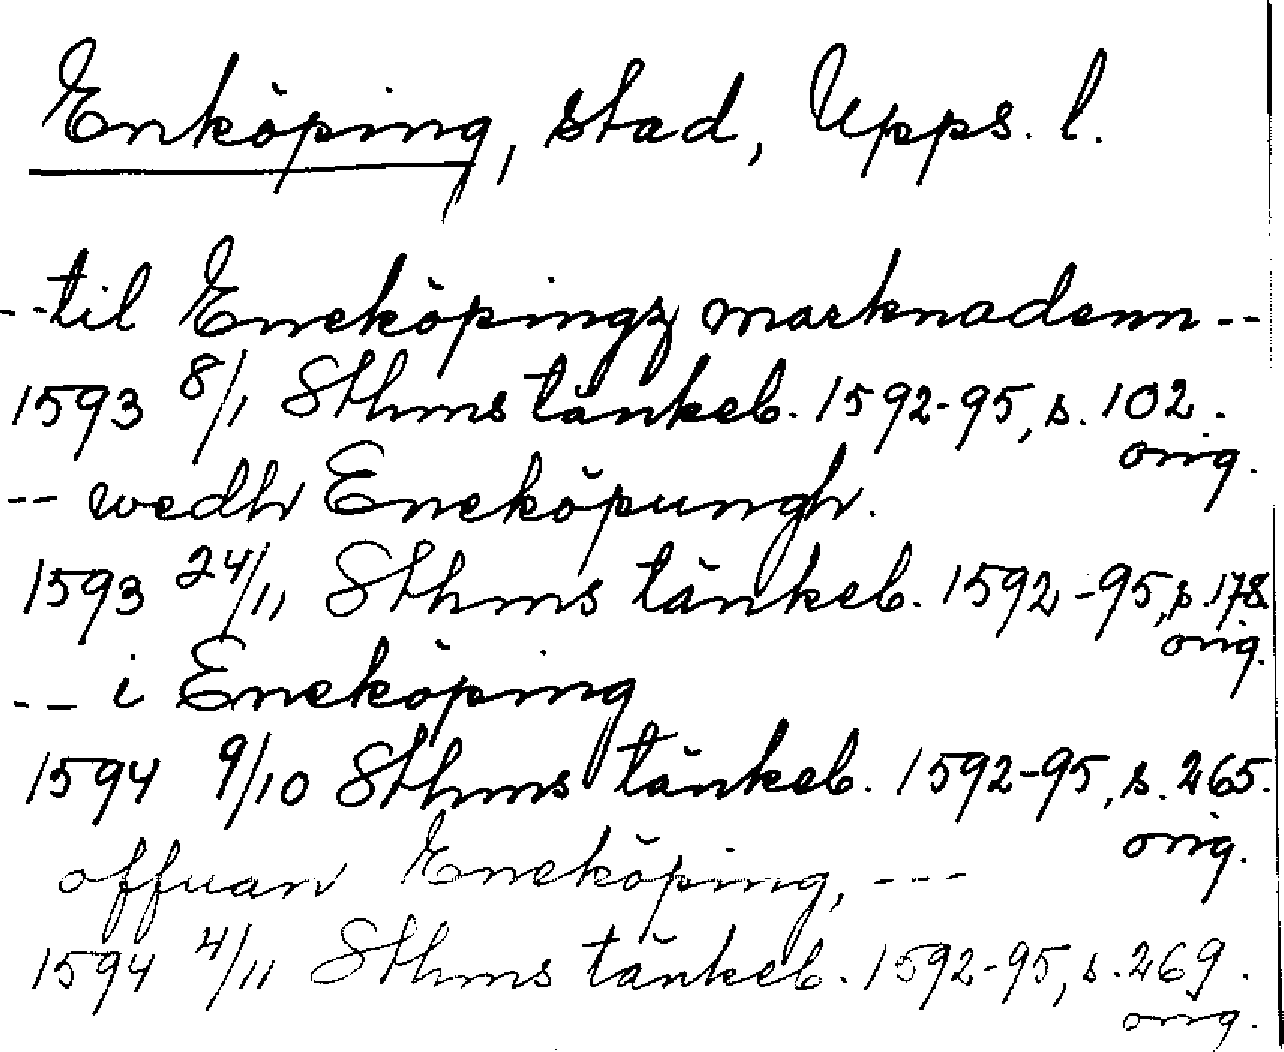 Enköping, stad, Upps. l.
-- til Eneköpingz marknadenn --
1593 8/1 Sthms tänkeb. 1592-95, s. 102.
orig.
-- wedh Eneköpungh.
1593 24/11 Sthms tänkeb. 1592-95, s. 178
orig.
-- i Eneköping
1594 9/10 Sthms tänkeb. 1592-95, s. 265.
orig.
offuan Eneköping, ---
1594 4/11 Sthms tänkeb. 1592-95, s. 269.
orig.